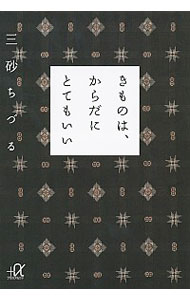 きものは、
からだに
とてもいい
三砂ちづる
+α